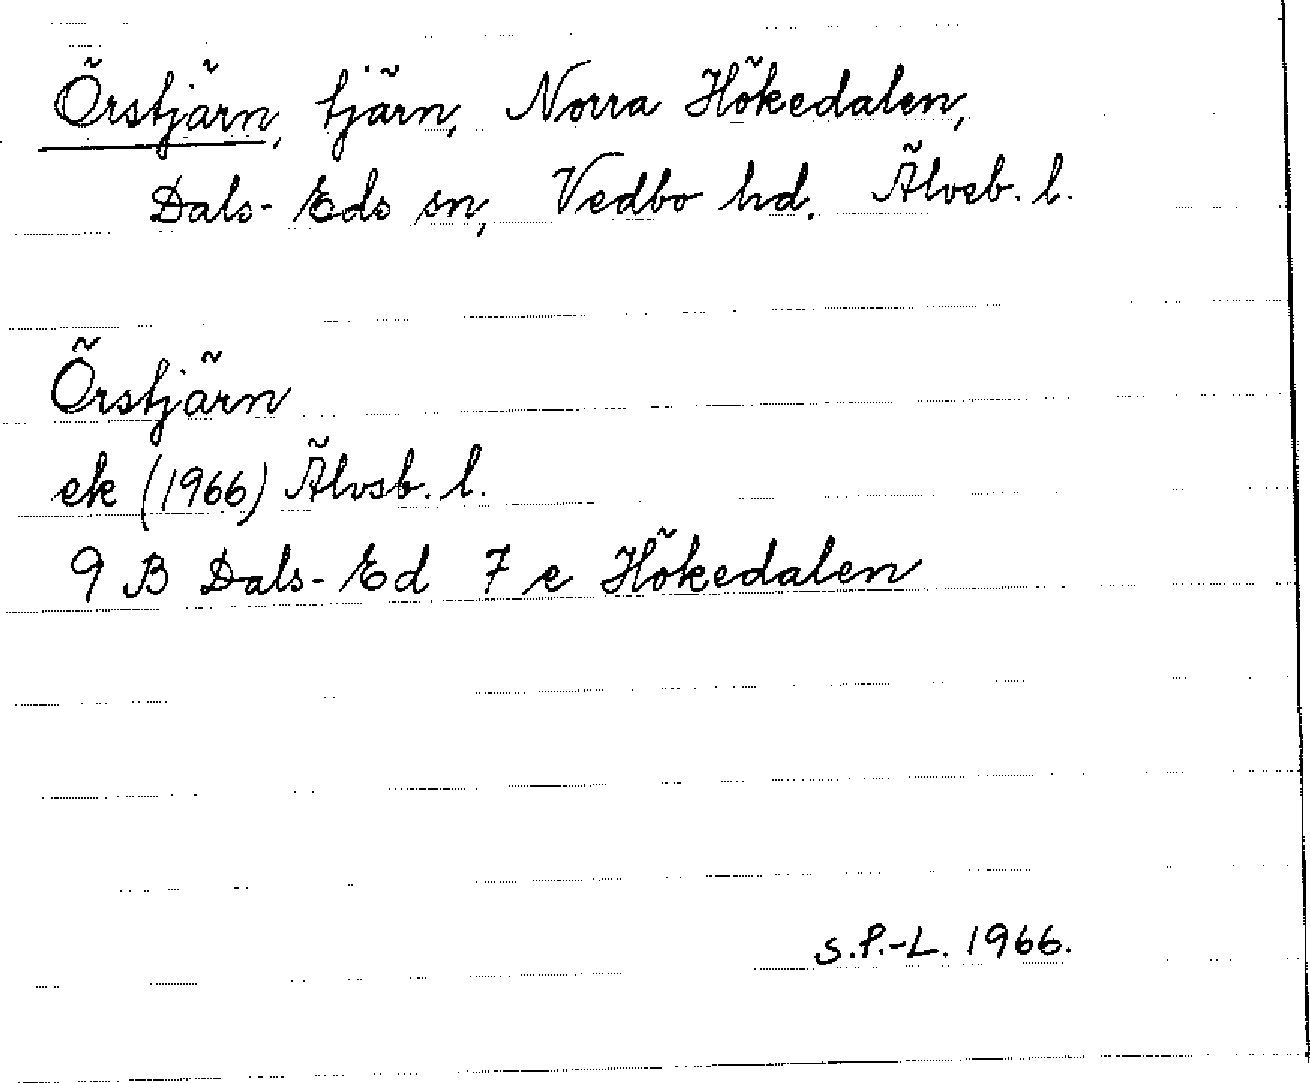 Örstjärn, tjärn, Norra Hökedalen,
Dals-Eds sn, Vedbo hd. Älvsb. l.
Örstjärn
ek (1966) Älvsb. l.
9 B Dals-Ed 7 e Hökedalen
S.P.-L. 1966.